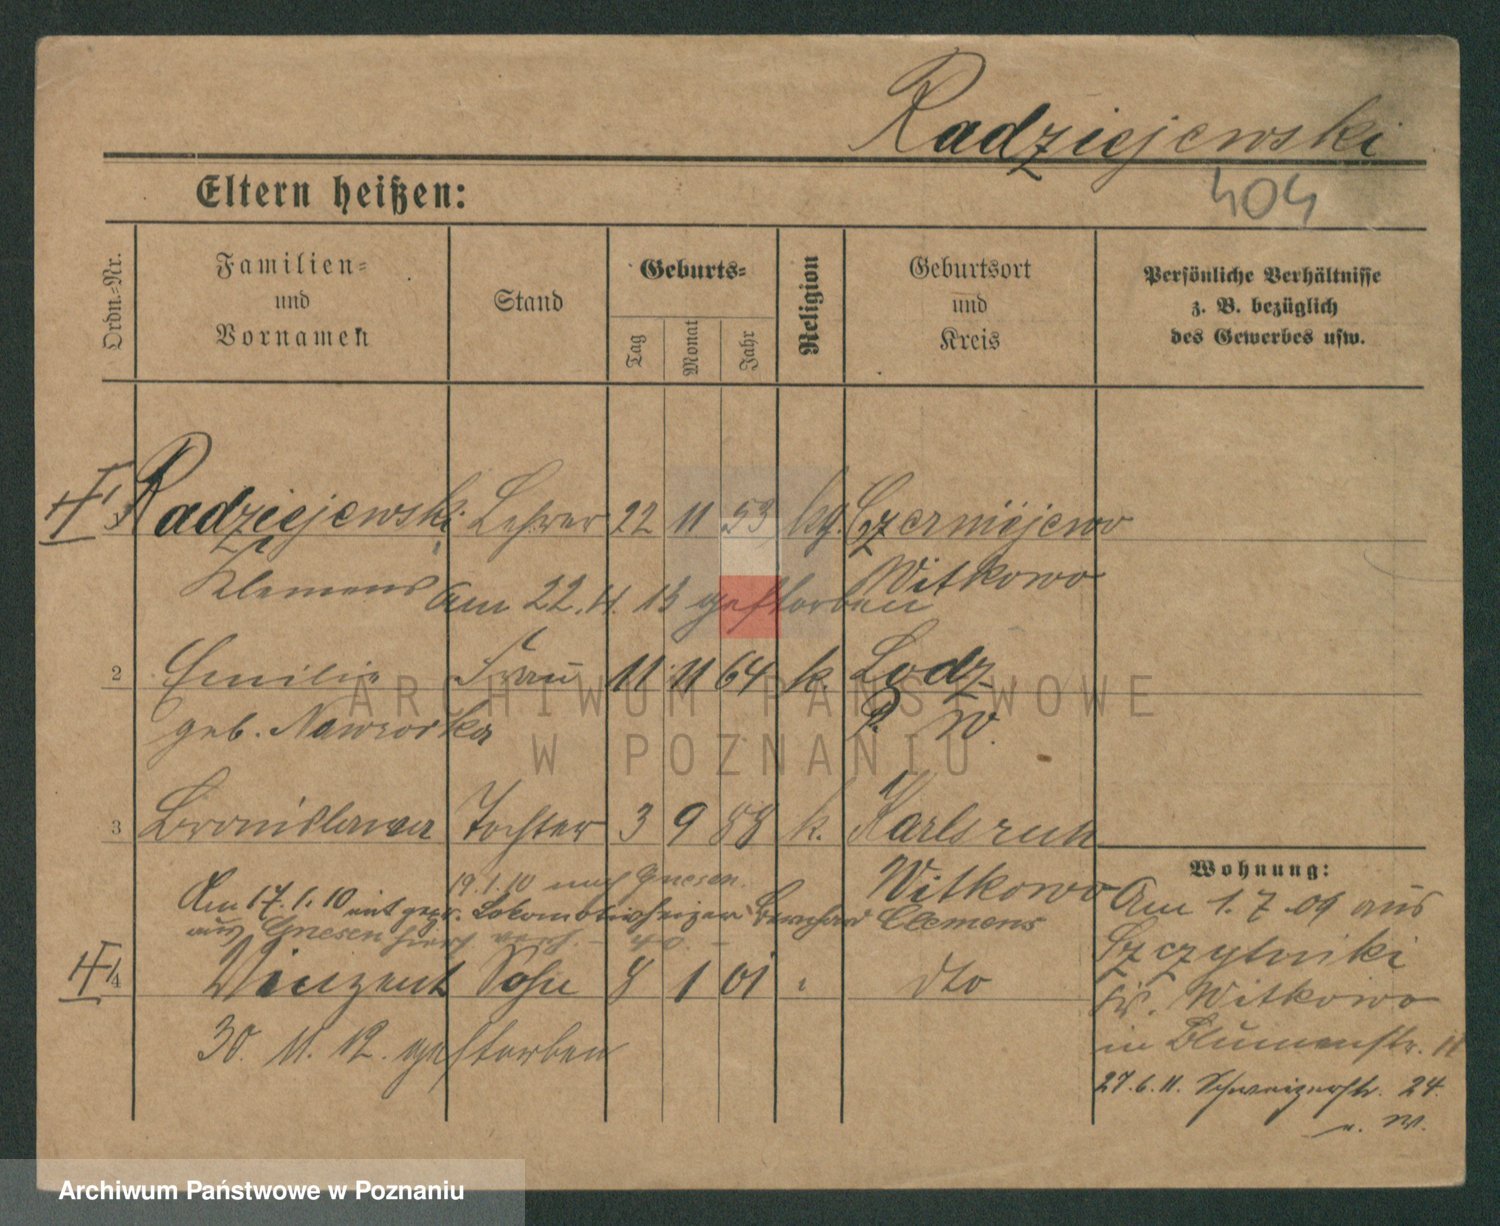 Radziejewski
404
Eltern heißen:
Ordn.-Nr.
Familien-
und
Vornamen
Stand
Geburts-
Tag
Monat
Jahr
Religion
Geburtsort
und
Kreis
Persönliche Verhältnisse
z. B. bezüglich
des Gewerbes usw.
1 Radziejewski Lehrer 22 11 53 Czerniejewo
Klemens Witkowo
Am 22. 11. 13 gestorben
2 Emilie Frau 11 11 64 k. Lodz
geb. Nawrocka R. W.
3 Bronislawa Tochter 3 9 88 k. Karlsruh
Witkowo
19.1.10 nach Gnesen.
Am 17.1.10 mit gepr. Lokomotivheizer Bernhard Clemens
aus Gnesen hier verh.
4 Vinzent Sohn 8 1 01 dto
30. 11. 12. gestorben
Wohnung:
Am 1.7.09 aus
Szczytniki
Kr. Witkowo
in Blumenstr. 11
27.6.11. Schweizerstr. 24.
n. W.
ARCHIWUM PAŃSTWOWE
W POZNANIU
Archiwum Państwowe w Poznaniu